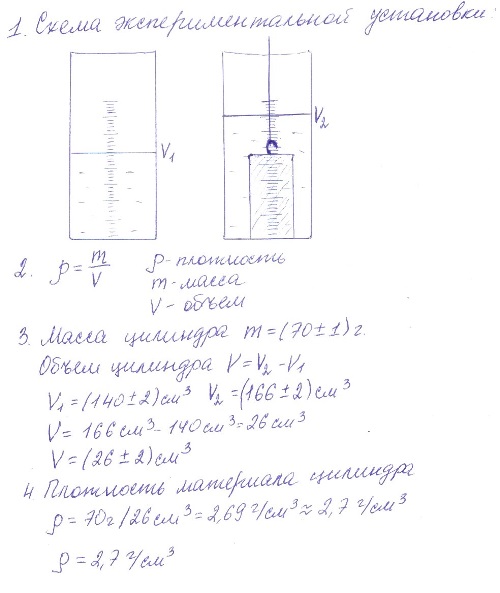 1. Схема экспериментальной установки:
V₁
V₂
2. ρ = m/V ρ - плотность
m - масса
V - объем
3. Масса цилиндра m = (70 ± 1) г.
Объем цилиндра V = V₂ - V₁
V₁ = (140 ± 2) см³ V₂ = (166 ± 2) см³
V = 166 см³ - 140 см³ = 26 см³
V = (26 ± 2) см³
4 Плотность материала цилиндра
ρ = 70 г / 26 см³ = 2,69 г/см³ ≈ 2,7 г/см³
ρ = 2,7 г/см³